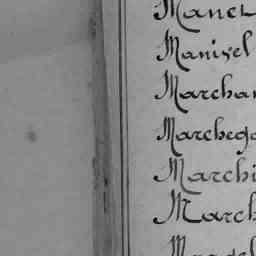 Manet
Manivel
Marchan
Marchega
Marchi
March